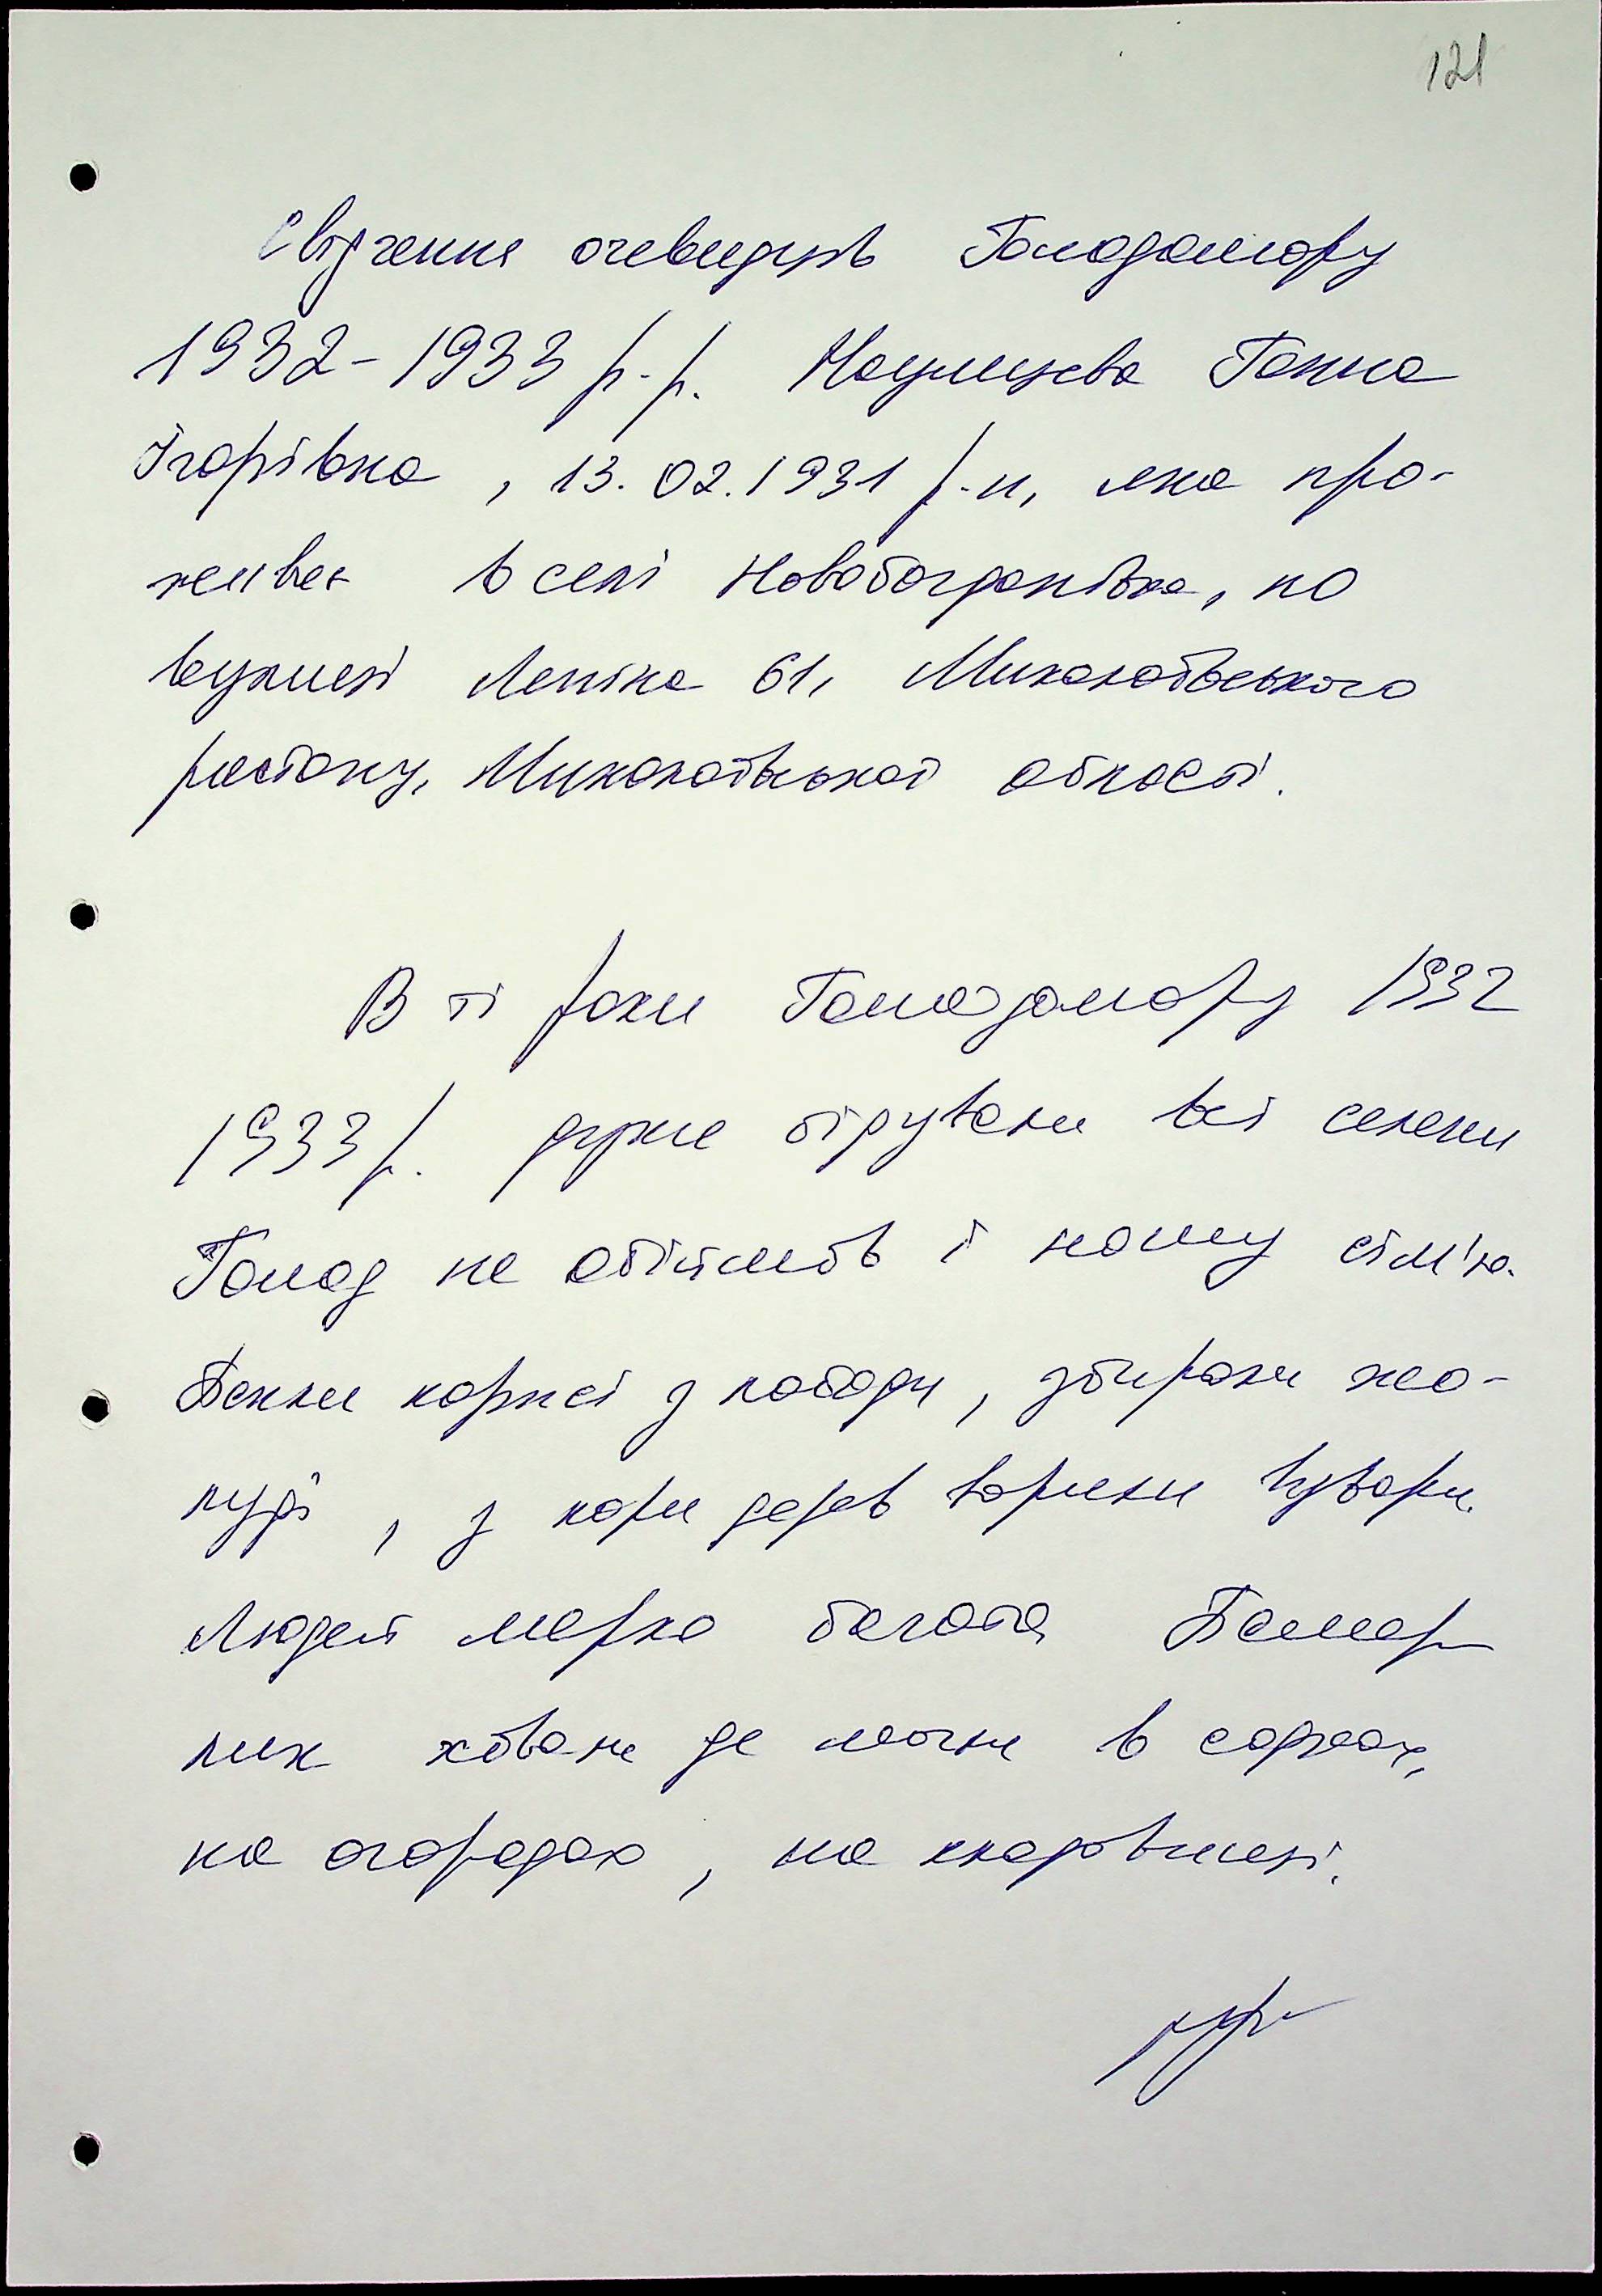 121
Свідчення очевидців Голодомору
1932-1933 р.р. Ганна
Ігорівна, 13.02.1931 р.н, яка про-
живає в селі Новобогданівка, по
вулиці Леніна 61, Миколаївського
району, Миколаївської області.
В ті роки Голодомору 1932
1933 р. дуже бідували всі селяни
Голод не обійшов і нашу сім'ю.
Пекли коржі з лободи, збирали жо-
луді, з кори дерев варили
Людей мерло багато. Бомер
лих ховали де могли в садках,
на огородах, на кладовищі.